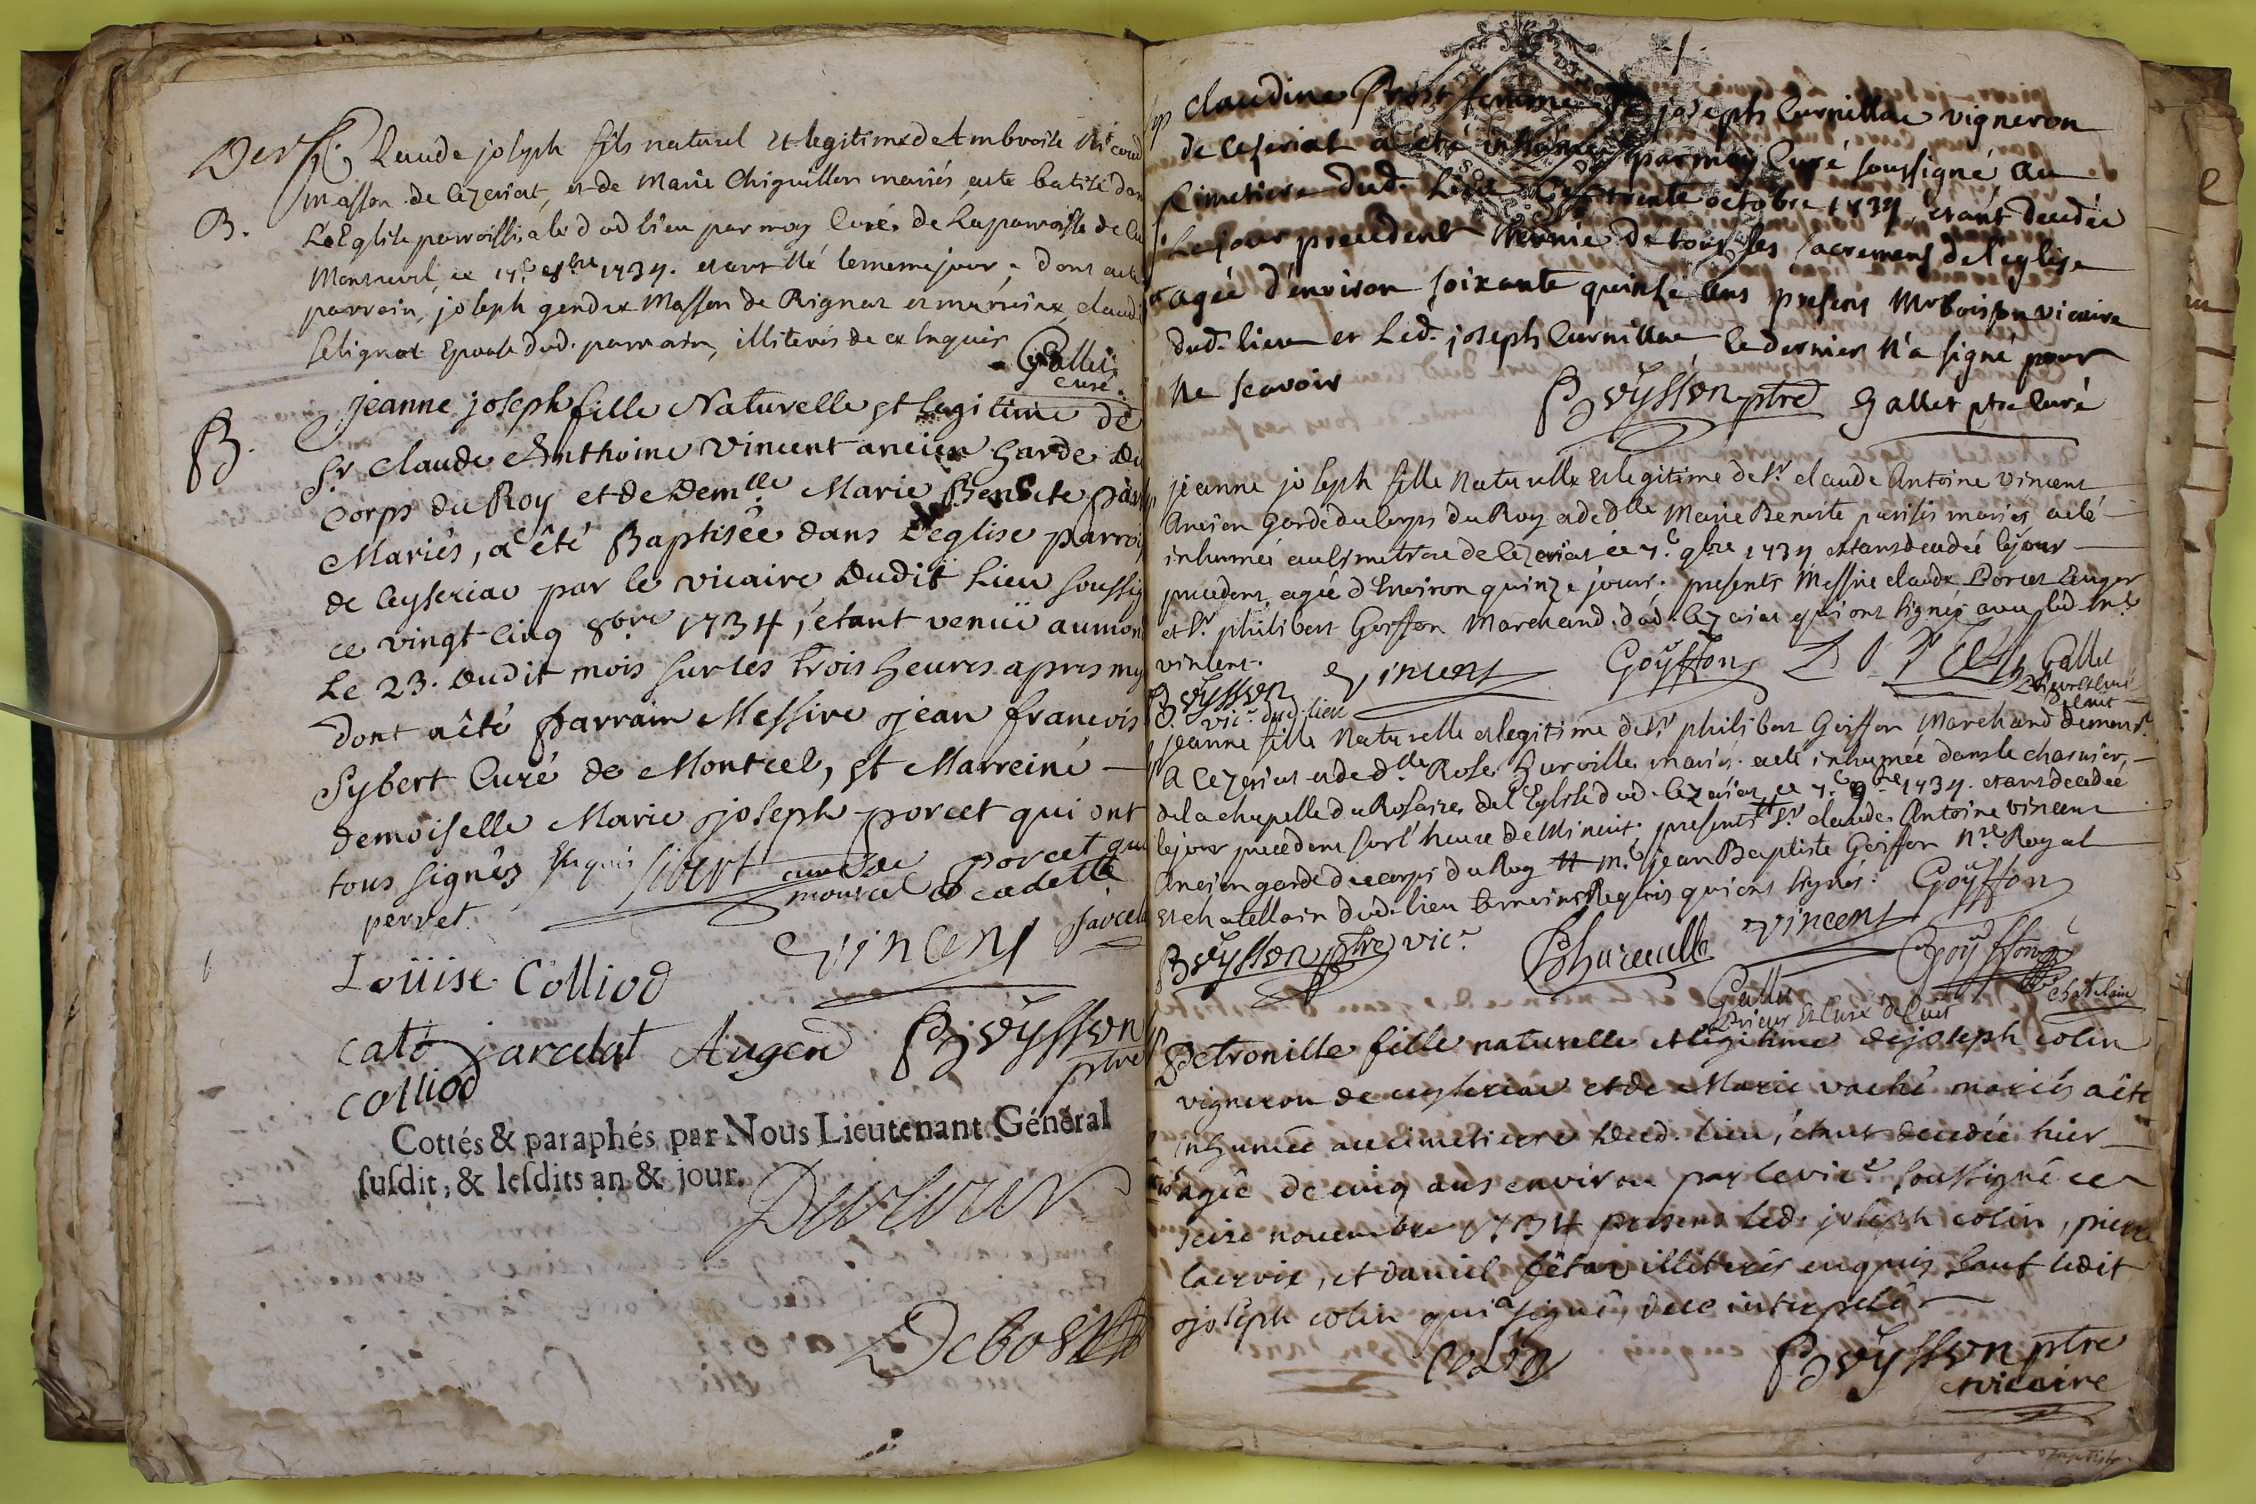 B.
Claude joseph fils naturel et legitime de Ambroise
masson de cezeriat, et de Marie Chiquillon mariés, a ete batizé dan
L'Eglise parroissiale dud lieu par moy Curé de La parroisse de
Montcuel, ce 17e 8bre 1734. etant né le meme jour; dont a eté
parrain, joseph gendre Masson de Rignat et marreine, claud
Selignat Epouse dud. parrain, illiterés de ce enquis
Gallet
curé
B.
jeanne joseph fille Naturelle et Legitime de
Sr claude Anthoine vincent ancien Garde du
Corps du Roy et de Demlle Marie Benoite par
Mariés, a êté Baptisée dans L'eglise parroi
de Ceyseriac par le vicaire dudit Lieu soussig
ce vingt cinq 8bre 1734, étant venüe au mon
Le 23. dudit mois sur les trois heures apres my
dont a êté parrain Messire jean francois
Sybert Curé de Montcel, et Marreine
demoiselle Marie joseph porcet qui ont
tous signés Enquis
sibert curé de moncel
porcet
cadette
pervet.
vincent
Loüise Colliod
cato jarcelat Augerd
Beÿsson
ptre
colliod
Cottés & paraphés par Nous Lieutenant Général
susdit, & lesdits an & jour.
1.
claudine femme de joseph Curnillac vigneron
de Ceseriat a été inhumée par moy Curé soussigné au
Cimetiere dud. Lieu Ce trente octobre 1734, etant decedée
Le jour precedent Munie de tous les sacremens de l'eglise
agée d'environ soixante quinse ans presens Mr boisson vicaire
dud. lieu et Led. joseph Curnillac Ce dernier n'a signé pour
ne scavoir
Beÿsson ptre
Gallet ptre Curé
jeanne joseph fille Naturelle et legitime de Sr claude Antoine vincent
Ancien garde du Corps du Roy et de dlle Marie Benoite parisis mariés, a eté
inhumée au Cimetiere de Cezeriat ce 7e 9bre 1734 etant decedée le jour
precedent, agée d'Environ quinze jours; presents Messire claude Porcet Auger
et Sr philibert Goiffon Marchand dud. Cezeriat qui ont signés avec led. Sr
vincent.
vincent
Goÿffon
Gallet
Prieur et curé
Beÿsson
vic. dud. lieu
jeanne fille Naturelle et legitime de Sr philibert Goiffon Marchand demeurt
A Cezeriat et de dlle Rose hurville mariés, a eté inhumée dans le charnier,
de la chapelle du Rosaire de l'Eglise dud. Cezeriat, ce 7e 9bre 1734. etant decedée
le jour precedent sur l'heure de Minuit; presents Sr claude Antoine vincent
Ancien garde du corps du Roy et me jean Baptiste Goiffon Nre Royal
et chatellain dud. lieu temoins Requis qui ont signés:
Goÿffon
Beÿsson ptre vic.
vincent
Goÿffon
chatelain
Gallet
Prieur et Curé
petronille fille naturelle et legitime de joseph colin
vigneron de ceyseriac et de Marie vaché mariés a êté
inhumée au cimetiere dud. lieu, étant decedée hier
agée de cinq ans environ par le vic.e soussigné ce
seize novembre 1734 presens led. joseph colin, pierre
lacroix, et daniel fêtav illiterés enquis sauf ledit
joseph colin qui a signé, de ce interpelé
colin
Beÿsson ptre
vicaire